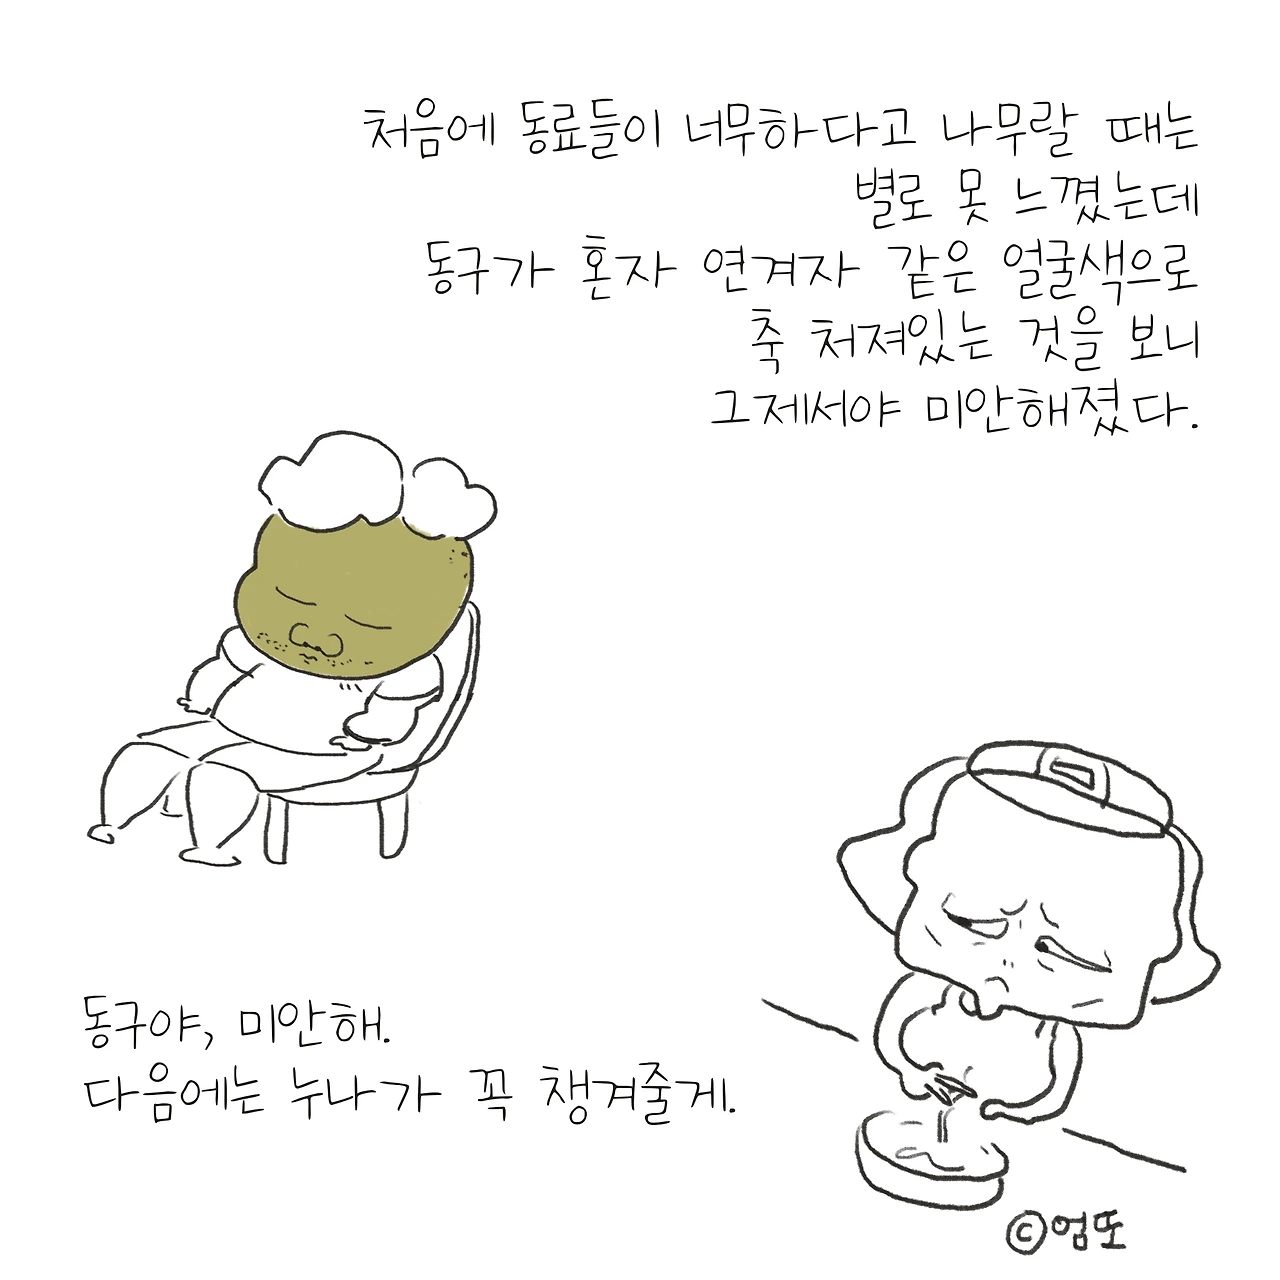 처음에 동료들이 너무하다고 나무랄 때는
별로 못 느꼈는데
동구가 혼자 연겨자 같은 얼굴색으로
축 처져있는 것을 보니
그제서야 미안해졌다.
동구야, 미안해.
다음에는 누나가 꼭 챙겨줄게.
ⓒ엄또